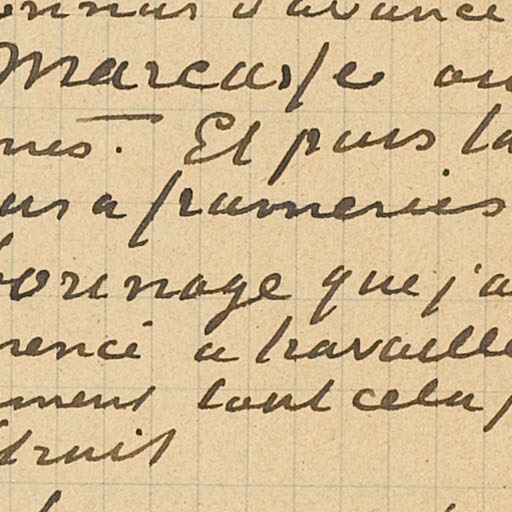 d'avance
Marcasse ou
nes. Et puis la
urs a frameries
borinage que j'a
rencé a travaille
ment tout cela
truit